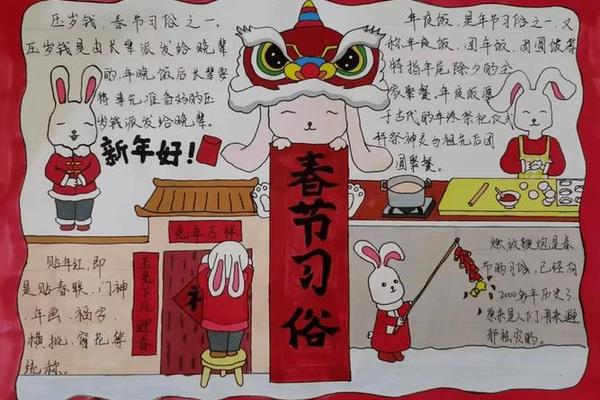 压岁钱，春节习俗之一，
压岁钱是由长辈派发给晚辈
的，年晚饭后长辈要
将事先准备好的压
岁钱派发给晚辈。
新年好！
年夜饭，是年节习俗之一，又
称年夜饭、团年饭、团圆饭等
特指年尾除夕的全
家聚餐，年夜饭源
于古代的年终祭祀仪式
拜祭神灵与祖先后团
圆聚餐。
春节习俗
兔年吉祥
玉兔下凡迎春
福
贴年红，即
是贴春联、门神
、年画、福字、
横批、窗花等
统称。
燃放鞭炮是春
节的习俗，已经有
2000多年历史了
原来是人们用来避
邪驱灾的。